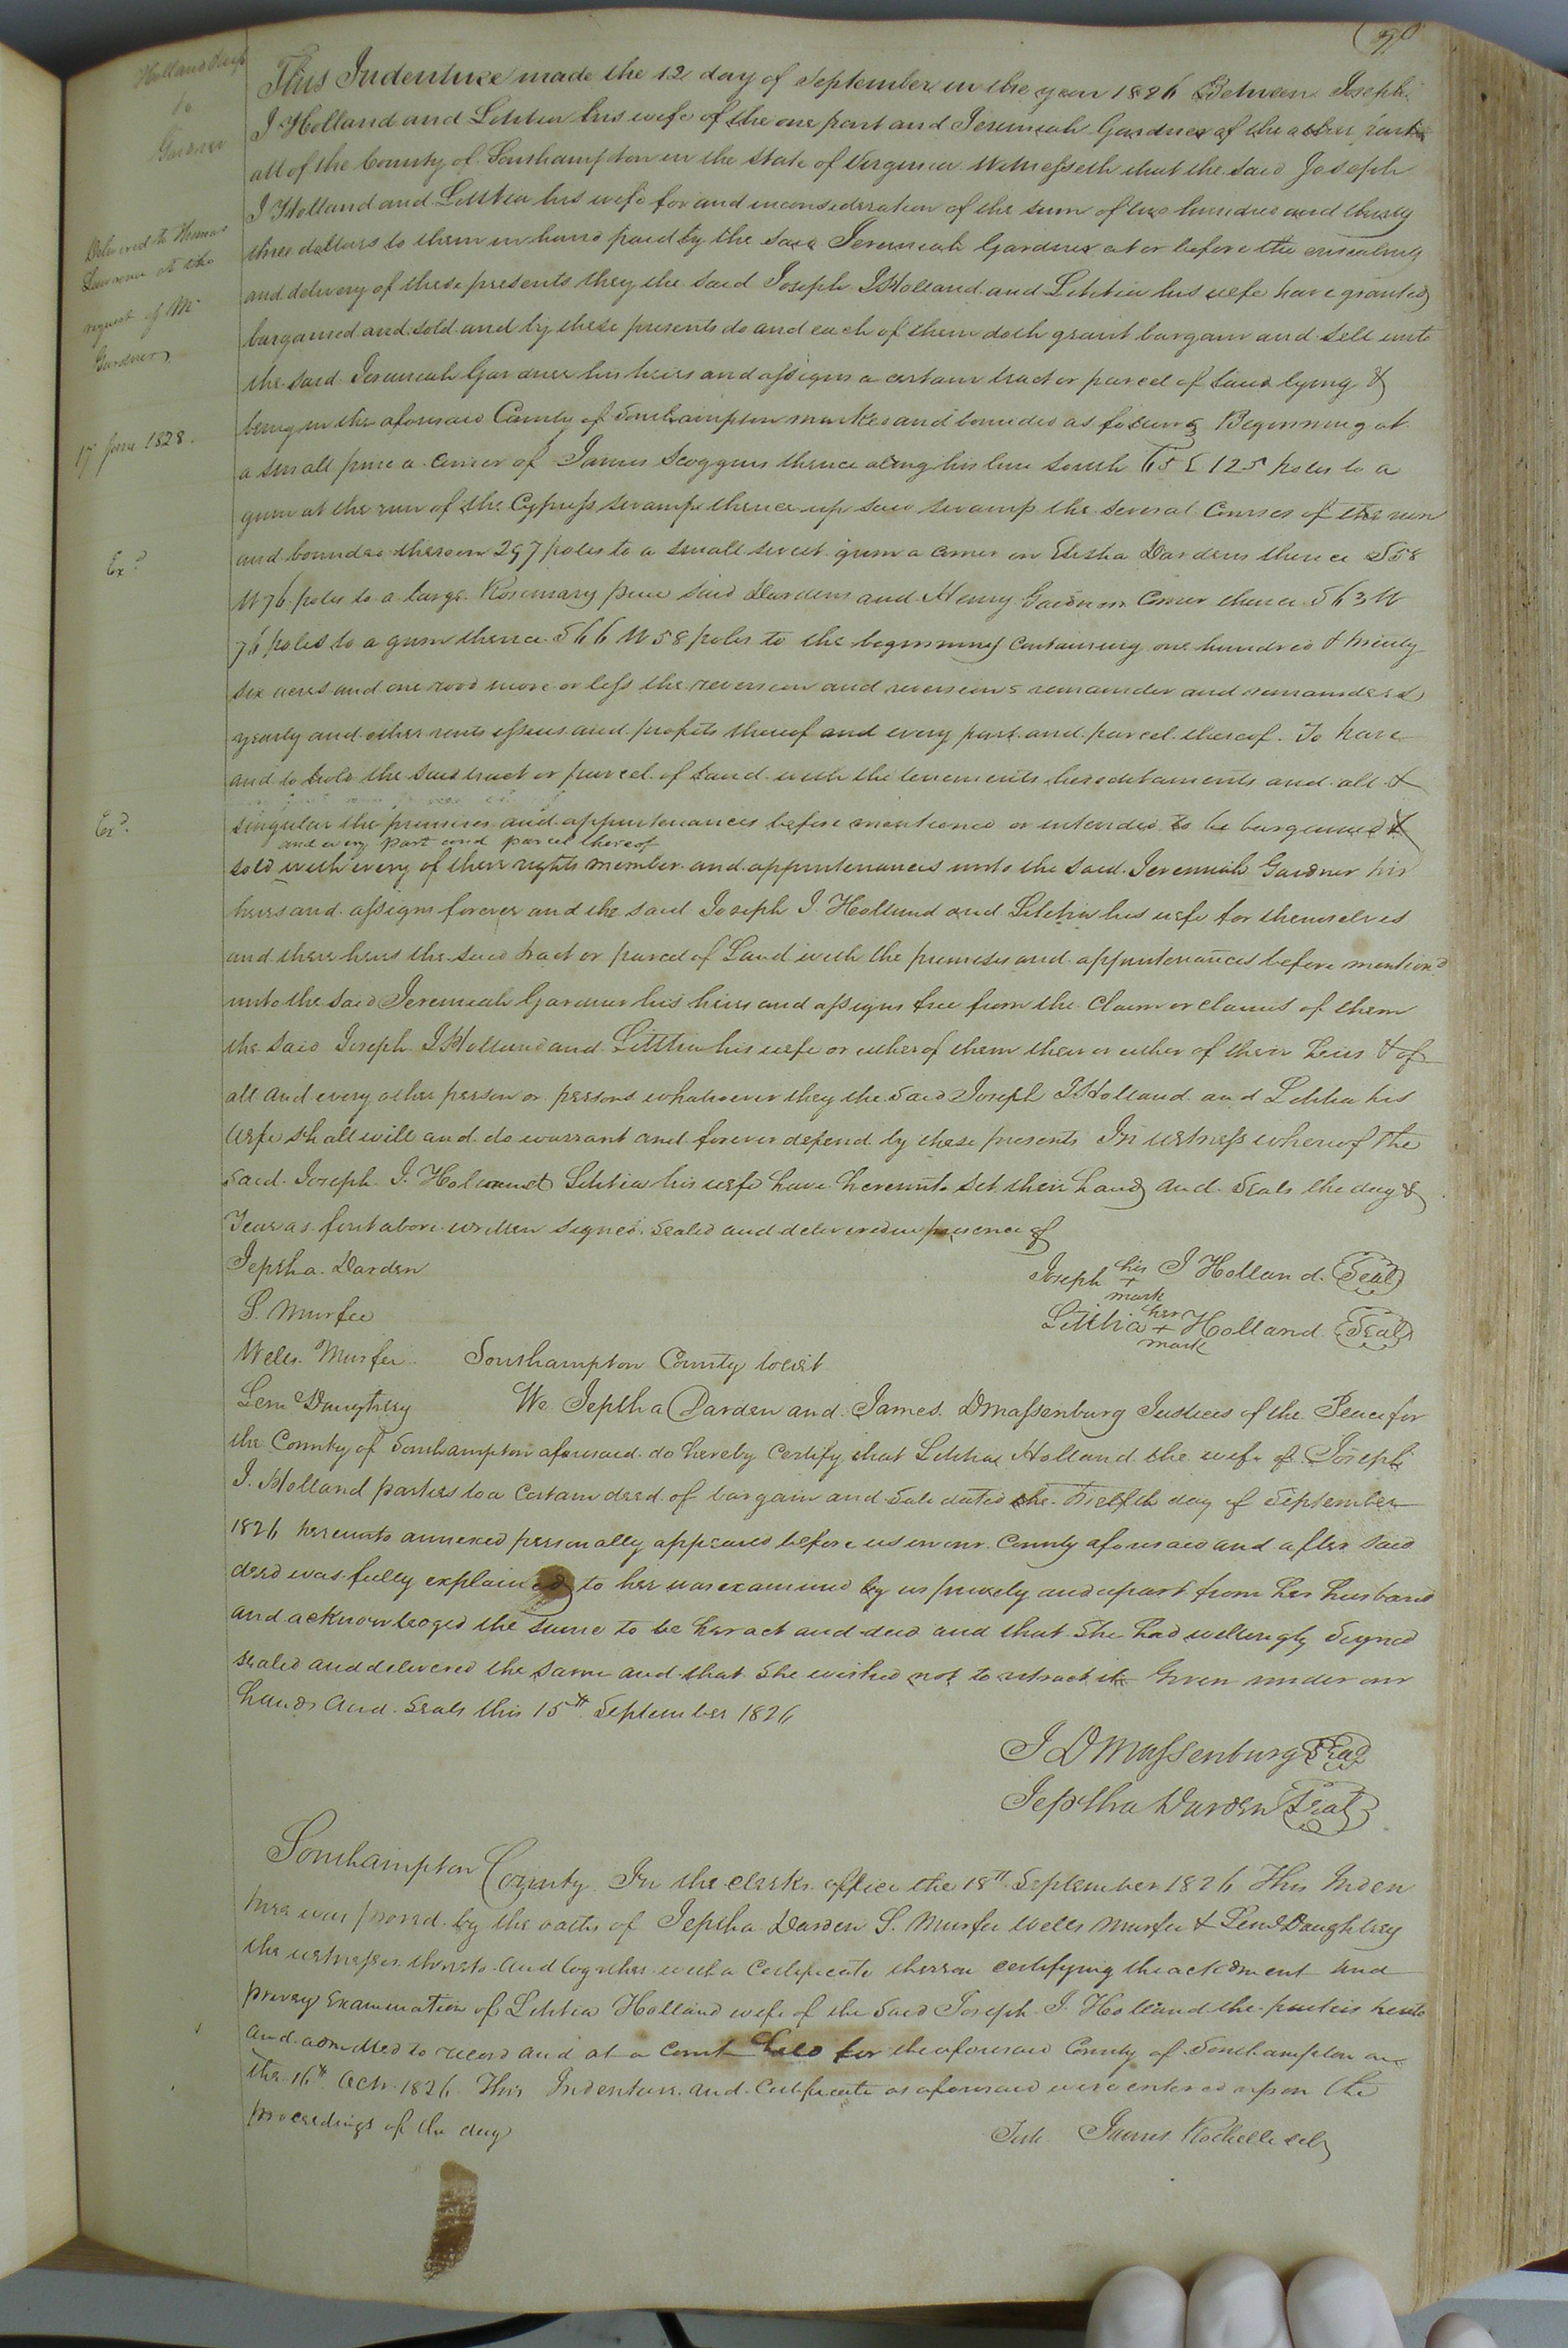 Holland &ux
to
Gardner
Delivered to Thomas
Lawrence at the
request of Mr
Gardner
17 June 1828.
Exd
Exd.
This Indenture made the 12 day of September in the year 1826 Between Joseph
J Holland and Letitia his wife of the one part and Jeremiah Gardner of the other part
all of the County of Southampton in the State of Virginia Witnesseth that the said Joseph
J Holland and Letitia his wife for and inconsideration of the sum of two hundred and thirty
three dollars to them in hand paid by the said Jeremiah Gardner at or before the ensealing
and delivery of these presents they the said Joseph J Holland and Letitia his wife have granted
bargained and sold and by these presents do and each of them doth grant bargain and sell unto
the said Jeremiah Gardner his heirs and assigns a certain tract or parcel of Land lying &
being in the aforesaid County of Southampton marked and bounded as follows Beginning at
a small pine a corner of James Scoggins thence along his line South 65 E 125 poles to a
gum at the run of the Cypress swamp thence up said swamp the several Courses of the run
and bounded thereon 297 poles to a small sweet gum a corner on Elisha Dardens thence S58
W 76 poles to a large Rosemary pine said Dardens and Henry Gardners Corner thence S 63 W
76 poles to a gum thence S66 W 58 poles to the beginning containing one hundred & ninety
six acres and one rood more or less the reversion and reversions remainder and remainders
yearly and other rents issues and profits thereof and every part and parcel thereof. To have
and to hold the said tract or parcel of Land with the tenements hereditaments and all &
singular the premises and appurtenances before mentioned or intended to be bargained &
and every part and parcel thereof
sold with every of their rights member and appurtenances unto the said Jeremiah Gardner his
heirs and assigns forever and the said Joseph J. Holland and Letitia his wife for themselves
and there heirs the said tract or parcel of Land with the premises and appurtenances before mentiond
unto the said Jeremiah Gardner his heirs and assigns free from the Claim or claims of them
the said Joseph J Holland and Letitia his wife or either of them their or either of their heirs & of
all and every other person or persons whatsoever they the said Joseph J Holland and Letitia his
wife shall will and do warrant and forever defend by these presents In witness whereof the
said Joseph J. Holland Letitia his wife have hereunto set their hands and seals the day &
Year as first above written signed sealed and delivered in presence of
Jeptha Darden
S. Murfee
Wells Murfee
Lem Daughtrey
Joseph his + mark J Holland. Seal
Letitia her + mark Holland Seal
Southampton County towit
We Jeptha Darden and James D Massenburg Justices of the Peace for
the County of Southampton aforesaid do hereby certify that Letitia Holland the wife of Joseph
J. Holland parties to a certain deed of bargain and sale dated the twelfth day of September
1826 hereunto annexed personally appeared before us in our County aforesaid and after said
deed was fully explained to her was examined by us privily and apart from her husband
and acknowledged the same to be her act and deed and that she had willingly signed
sealed and delivered the same and that she wished not to retract it Given under our
hands and seals this 15th September 1826
J D Massenburg Seal
Jeptha Darden Seal
Southampton County In the clerks office the 18th September 1826 This Inden
ture was proved by the oaths of Jeptha Darden S. Murfee Wells Murfee & Lem Daughtrey
the witnesses thereto and together with a Certificate thereon certifying the acknowledgment and
privey Examination of Letitia Holland wife of the said Joseph J. Holland the parties hereto
and admitted to record and at a Court held for the aforesaid County of Southampton on
the 16th Octr 1826 This Indenture and Certificate as aforesaid were entered upon the
proceedings of the day
Teste James Rochelle clk